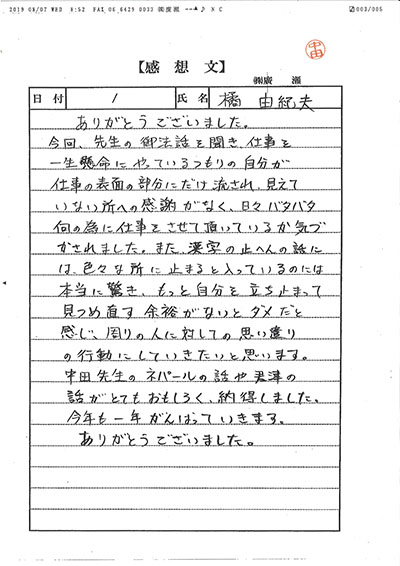 2019 08/07 WED 8:52 FAX 06 6429 0033 ㈱廣瀬 003/005
中田
【感想文】
㈱廣瀬
日付 / 氏名 橘 由紀夫
ありがとうございました。
今回、先生の御法話を聞き、仕事を
一生懸命にやっているつもりの自分が
仕事の表面の部分にだけ流され、見えて
いない所への感謝がなく、日々バタバタ
何の為に仕事をさせて頂いているか気づ
かされました。また、漢字の止へんの話に
は、色々な所に止まると入っているのには
本当に驚き、もっと自分を立ち止まって
見つめ直す余裕がないとダメだと
感じ、周りの人に対しての思い遣り
の行動にしていきたいと思います。
中田先生のネパールの話や君津の
話がとてもおもしろく、納得しました。
今年も一年がんばっていきます。
ありがとうございました。